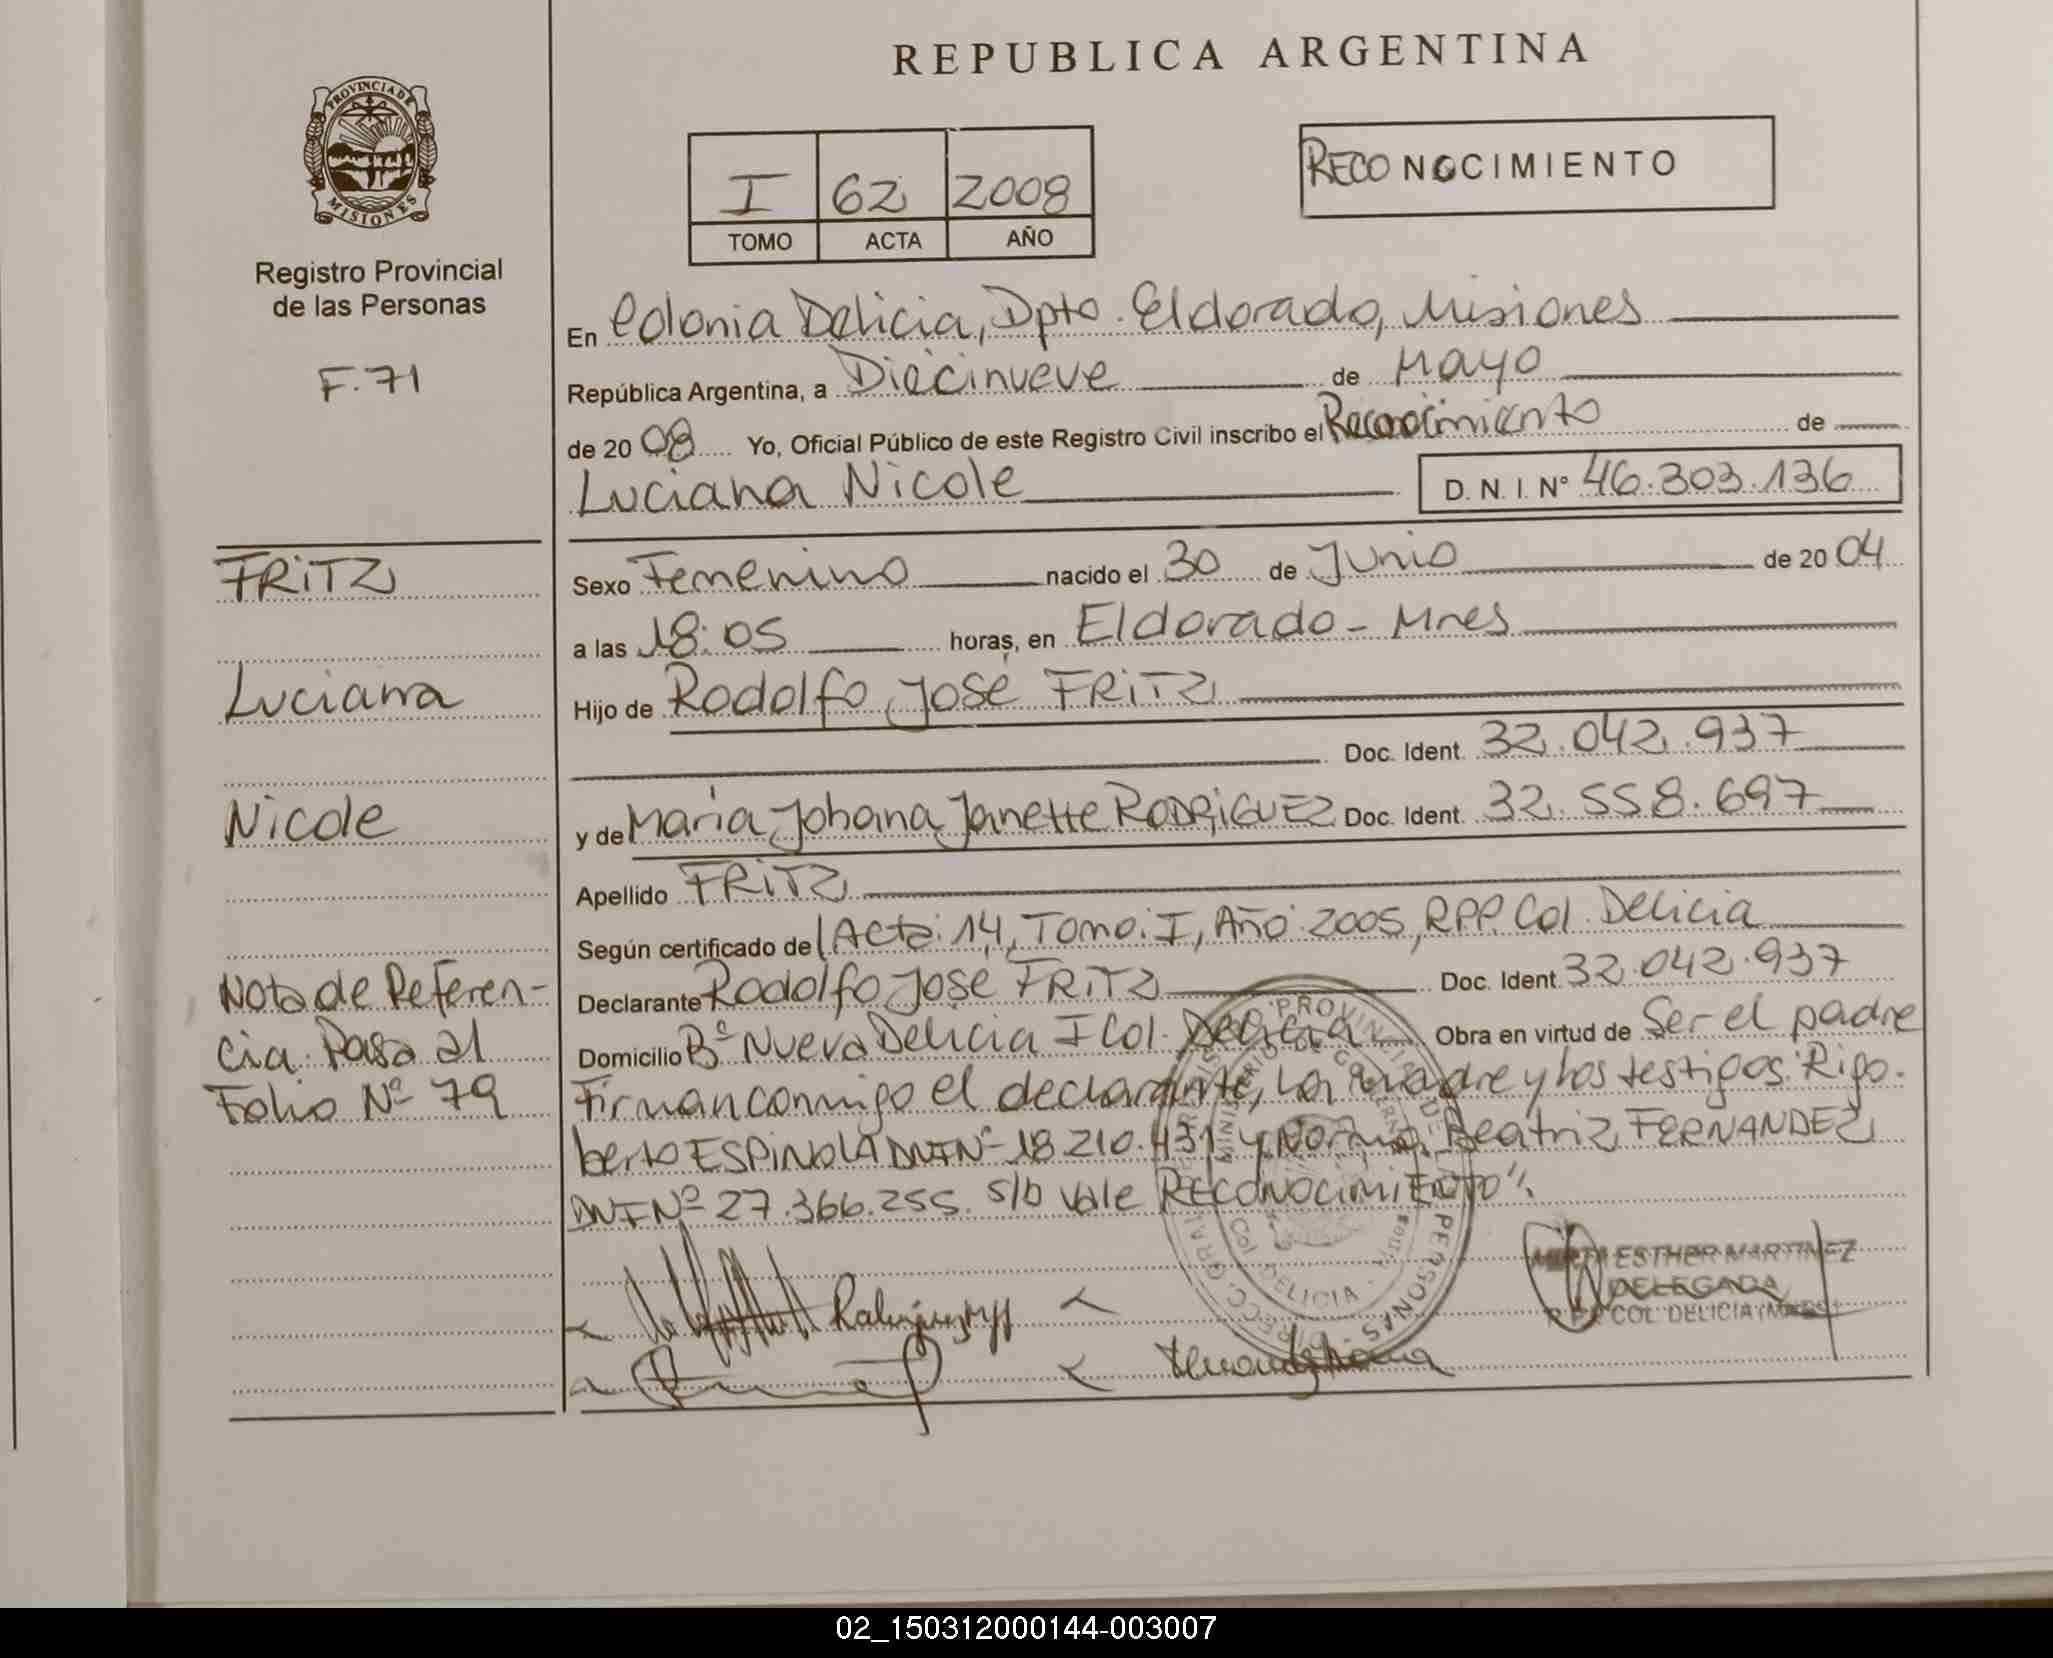 REPUBLICA ARGENTINA
PROVINCIA DE
MISIONES
Registro Provincial
de las Personas
F.71
I 62 2008
TOMO ACTA AÑO
RECONOCIMIENTO
En Colonia Delicia, Dpto. Eldorado, Misiones
República Argentina, a Diecinueve de Mayo
de 2008 Yo, Oficial Público de este Registro Civil inscribo el Reconocimiento de
Luciana Nicole D. N. I. Nº 46.303.136
FRITZ
Luciana
Nicole
Nota de Referen-
cia: Pasa al
Folio Nº 79
Sexo Femenino nacido el 30 de Junio de 2004
a las 18:05 horas, en Eldorado - Mnes
Hijo de Rodolfo José FRITZ
Doc. Ident. 32.042.937
y de María Johana Janette RODRIGUEZ Doc. Ident. 32.558.697
Apellido FRITZ
Según certificado de Acta: 14, Tomo: I, Año: 2005, RPP. Col. Delicia
Declarante Rodolfo José FRITZ Doc. Ident. 32.042.937
Domicilio Bº Nueva Delicia I Col. Delicia Obra en virtud de Ser el padre
Firman conmigo el declarante, La madre y los testigos: Rigo-
berto ESPINOLA DNI Nº 18.210.431 y Norma Beatriz FERNANDEZ
DNI Nº 27.366.255. s/b Vale RECONOCIMIENTO".
ESTHER MARTINEZ
DELEGADA
COL. DELICIA
02_150312000144-003007